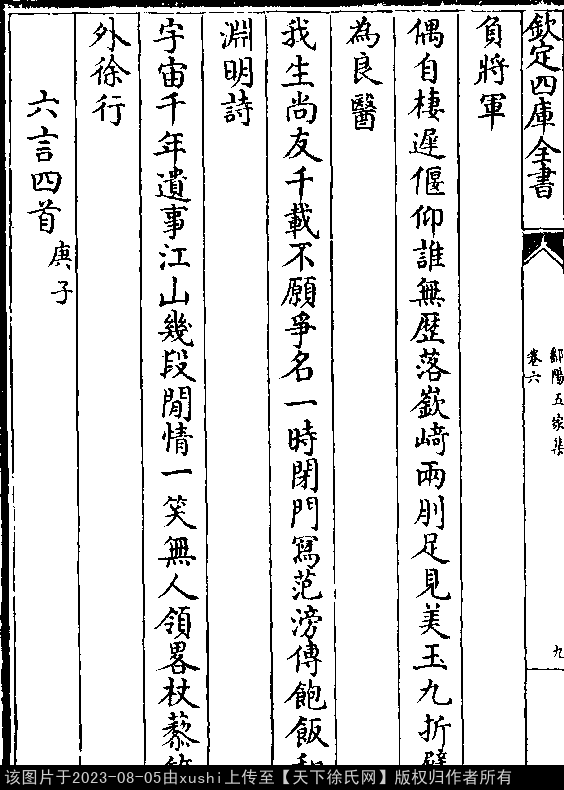 欽定四庫全書
鄱陽五家集
卷六
九
負將軍
偶自棲遲偃仰誰無歴落嶔﨑兩刖足見美玉九折臂
為良醫
我生尚友千載不願爭名一時閉門寫范滂傳飽飯和
淵明詩
宇宙千年遺事江山幾段閒情一笑無人領畧杖藜
外徐行
六言四首庚子
该图片于2023-08-05由xushi上传至【天下徐氏网】版权归作者所有